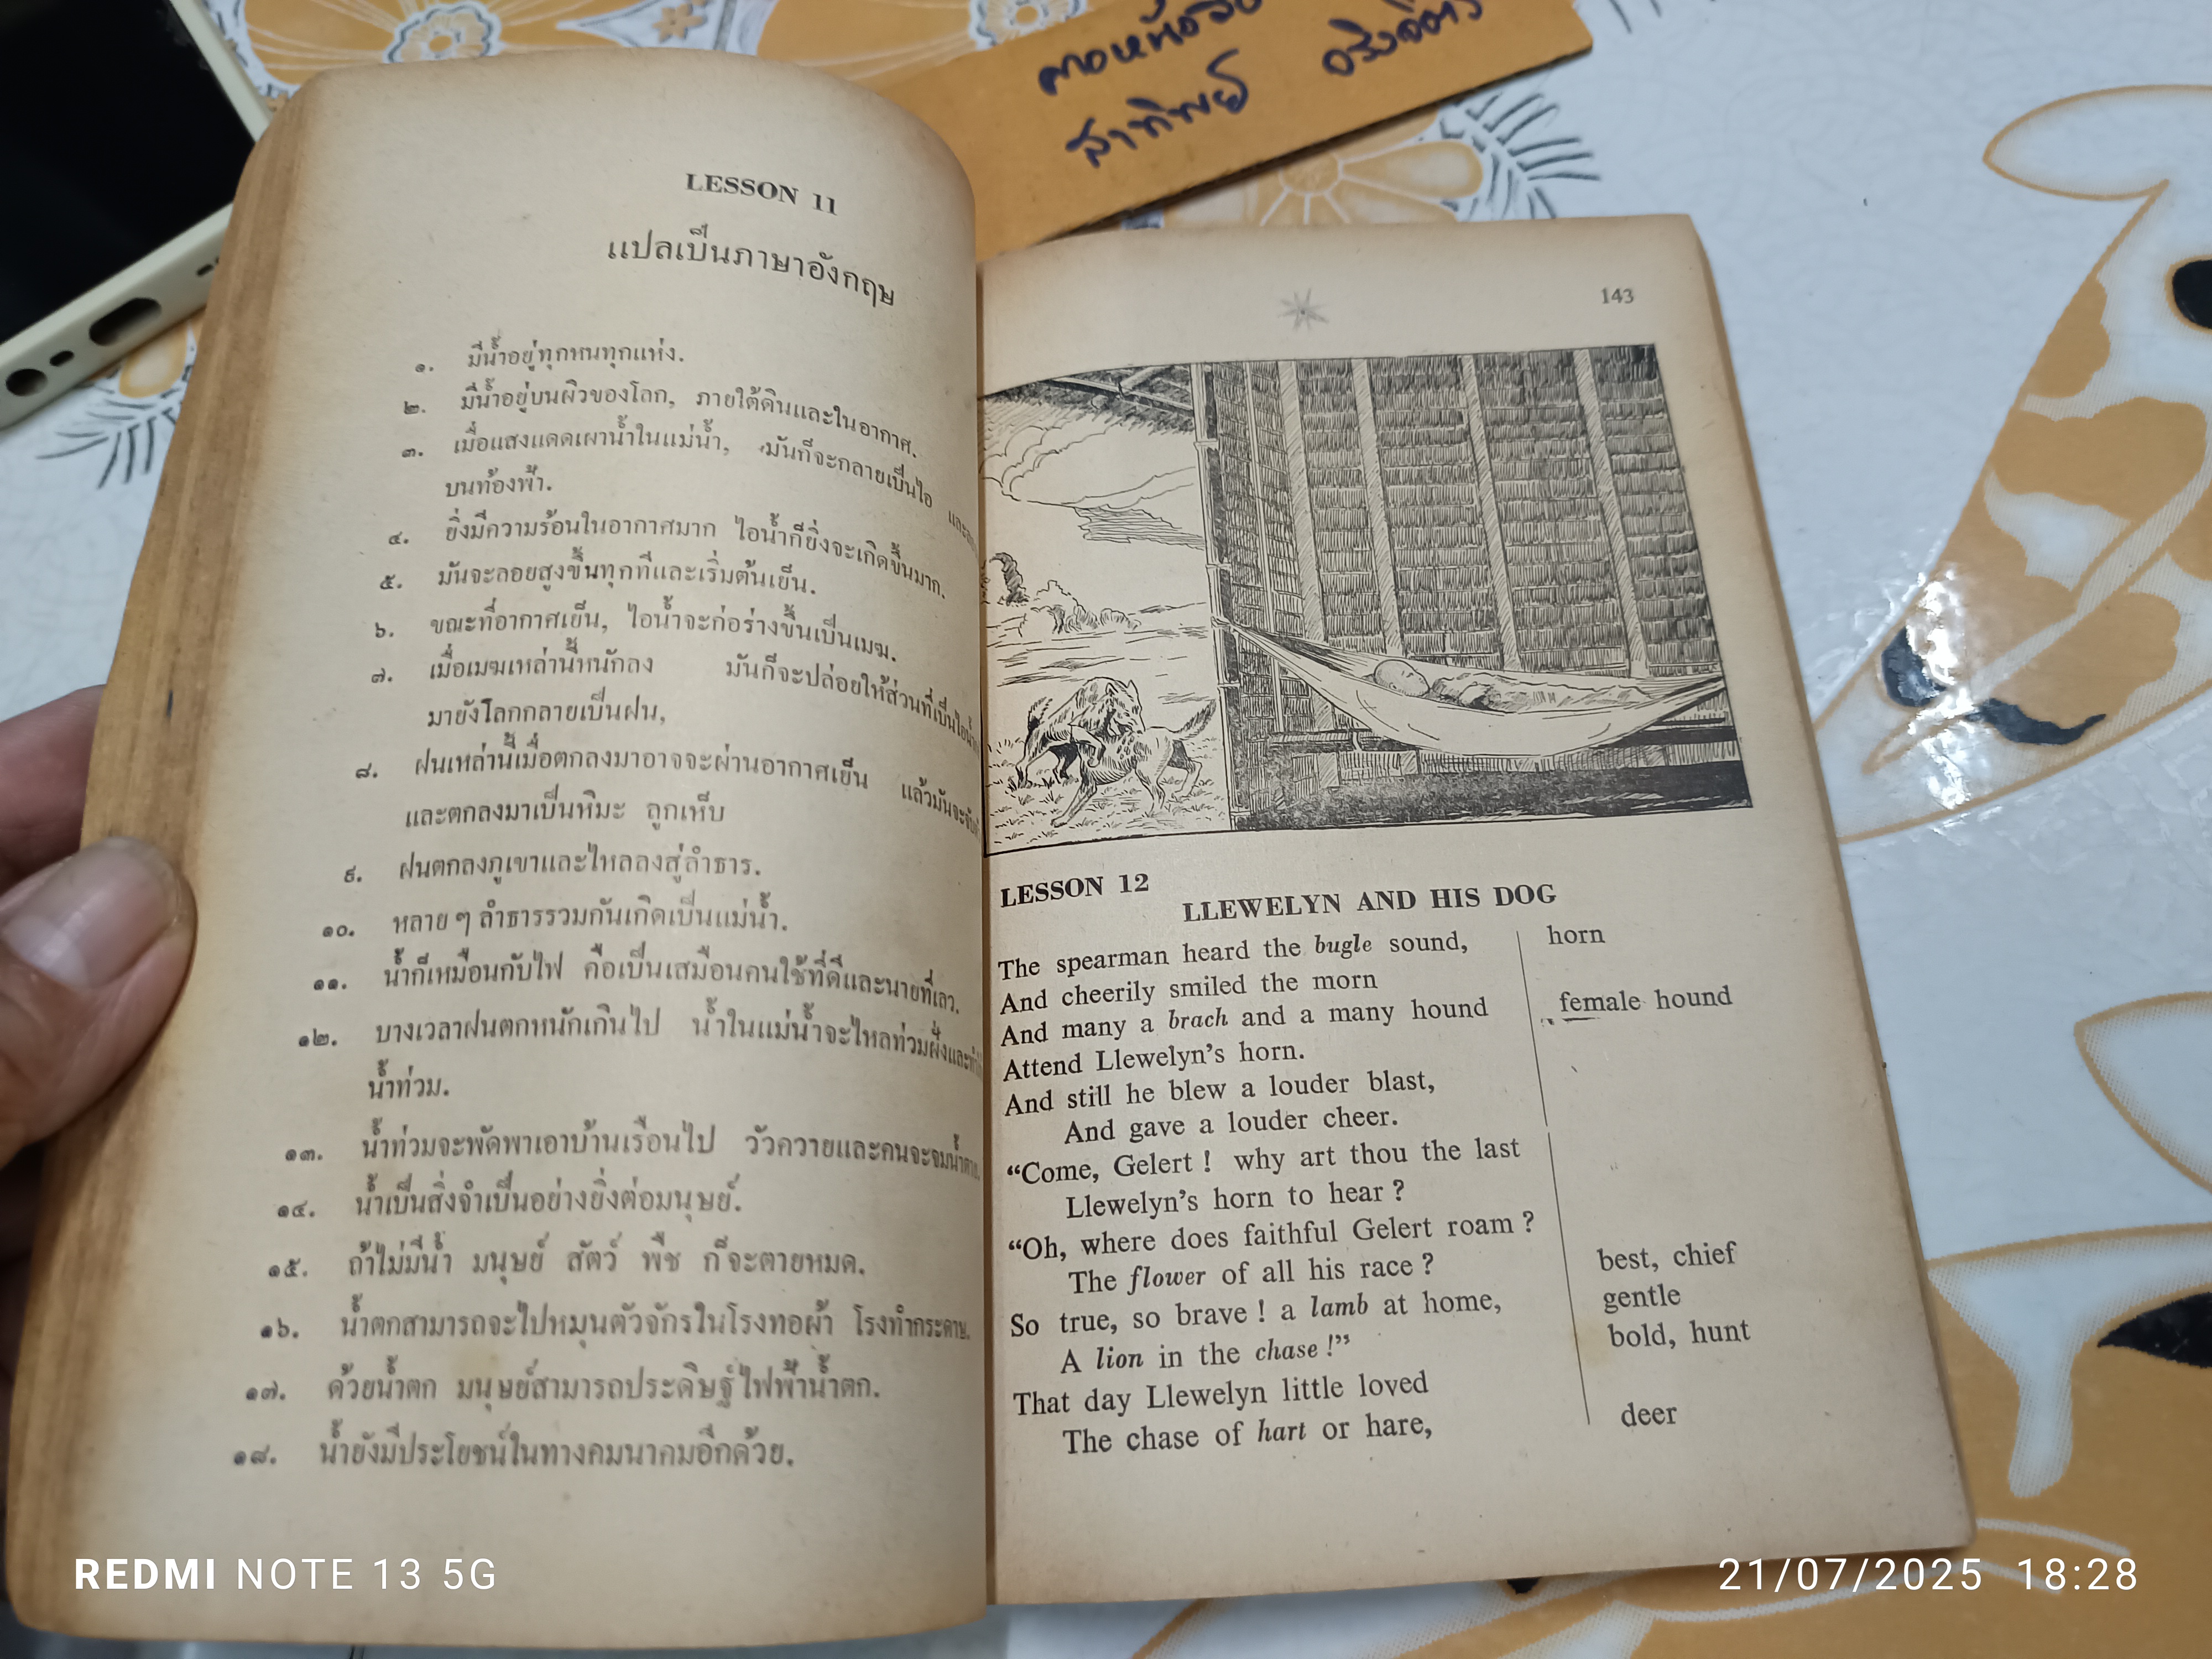 สาทิพย์
LESSON 11
แปลเป็นภาษาอังกฤษ
๑. มีน้ำอยู่ทุกหนทุกแห่ง.
๒. มีน้ำอยู่บนผิวของโลก, ภายใต้ดินและในอากาศ.
๓. เมื่อแสงแดดเผาน้ำในแม่น้ำ, มันก็จะกลายเป็นไอ
บนท้องฟ้า.
๔. ยิ่งมีความร้อนในอากาศมาก ไอน้ำก็ยิ่งจะเกิดขึ้นมาก.
๕. มันจะลอยสูงขึ้นทุกทีและเริ่มต้นเย็น.
๖. ขณะที่อากาศเย็น, ไอน้ำจะก่อร่างขึ้นเป็นเมฆ.
๗. เมื่อเมฆเหล่านี้หนักลง มันก็จะปล่อยให้ส่วนที่เป็นไอน้ำ
มายังโลกกลายเป็นฝน,
๘. ฝนเหล่านี้เมื่อตกลงมาอาจจะผ่านอากาศเย็น แล้วมันจะ
และตกลงมาเป็นหิมะ ลูกเห็บ
๙. ฝนตกลงภูเขาและไหลลงสู่ลำธาร.
๑๐. หลาย ๆ ลำธารรวมกันเกิดเป็นแม่น้ำ.
๑๑. น้ำก็เหมือนกับไฟ คือเป็นเสมือนคนใช้ที่ดีและนายที่เลว.
๑๒. บางเวลาฝนตกหนักเกินไป น้ำในแม่น้ำจะไหลท่วมฝั่งและ
น้ำท่วม.
๑๓. น้ำท่วมจะพัดพาเอาบ้านเรือนไป วัวควายและคนจะจมน้ำ
๑๔. น้ำเป็นสิ่งจำเป็นอย่างยิ่งต่อมนุษย์.
๑๕. ถ้าไม่มีน้ำ มนุษย์ สัตว์ พืช ก็จะตายหมด.
๑๖. น้ำตกสามารถจะไปหมุนตัวจักรในโรงทอผ้า โรงทำกระดาษ.
๑๗. ด้วยน้ำตก มนุษย์สามารถประดิษฐ์ไฟฟ้าน้ำตก.
๑๘. น้ำยังมีประโยชน์ในทางคมนาคมอีกด้วย.
143
LESSON 12
LLEWELYN AND HIS DOG
The spearman heard the bugle sound, horn
And cheerily smiled the morn
And many a brach and a many hound female hound
Attend Llewelyn's horn.
And still he blew a louder blast,
And gave a louder cheer.
“Come, Gelert ! why art thou the last
Llewelyn's horn to hear ?
“Oh, where does faithful Gelert roam ?
The flower of all his race ? best, chief
So true, so brave ! a lamb at home, gentle
A lion in the chase !” bold, hunt
That day Llewelyn little loved
The chase of hart or hare, deer
REDMI NOTE 13 5G
21/07/2025 18:28